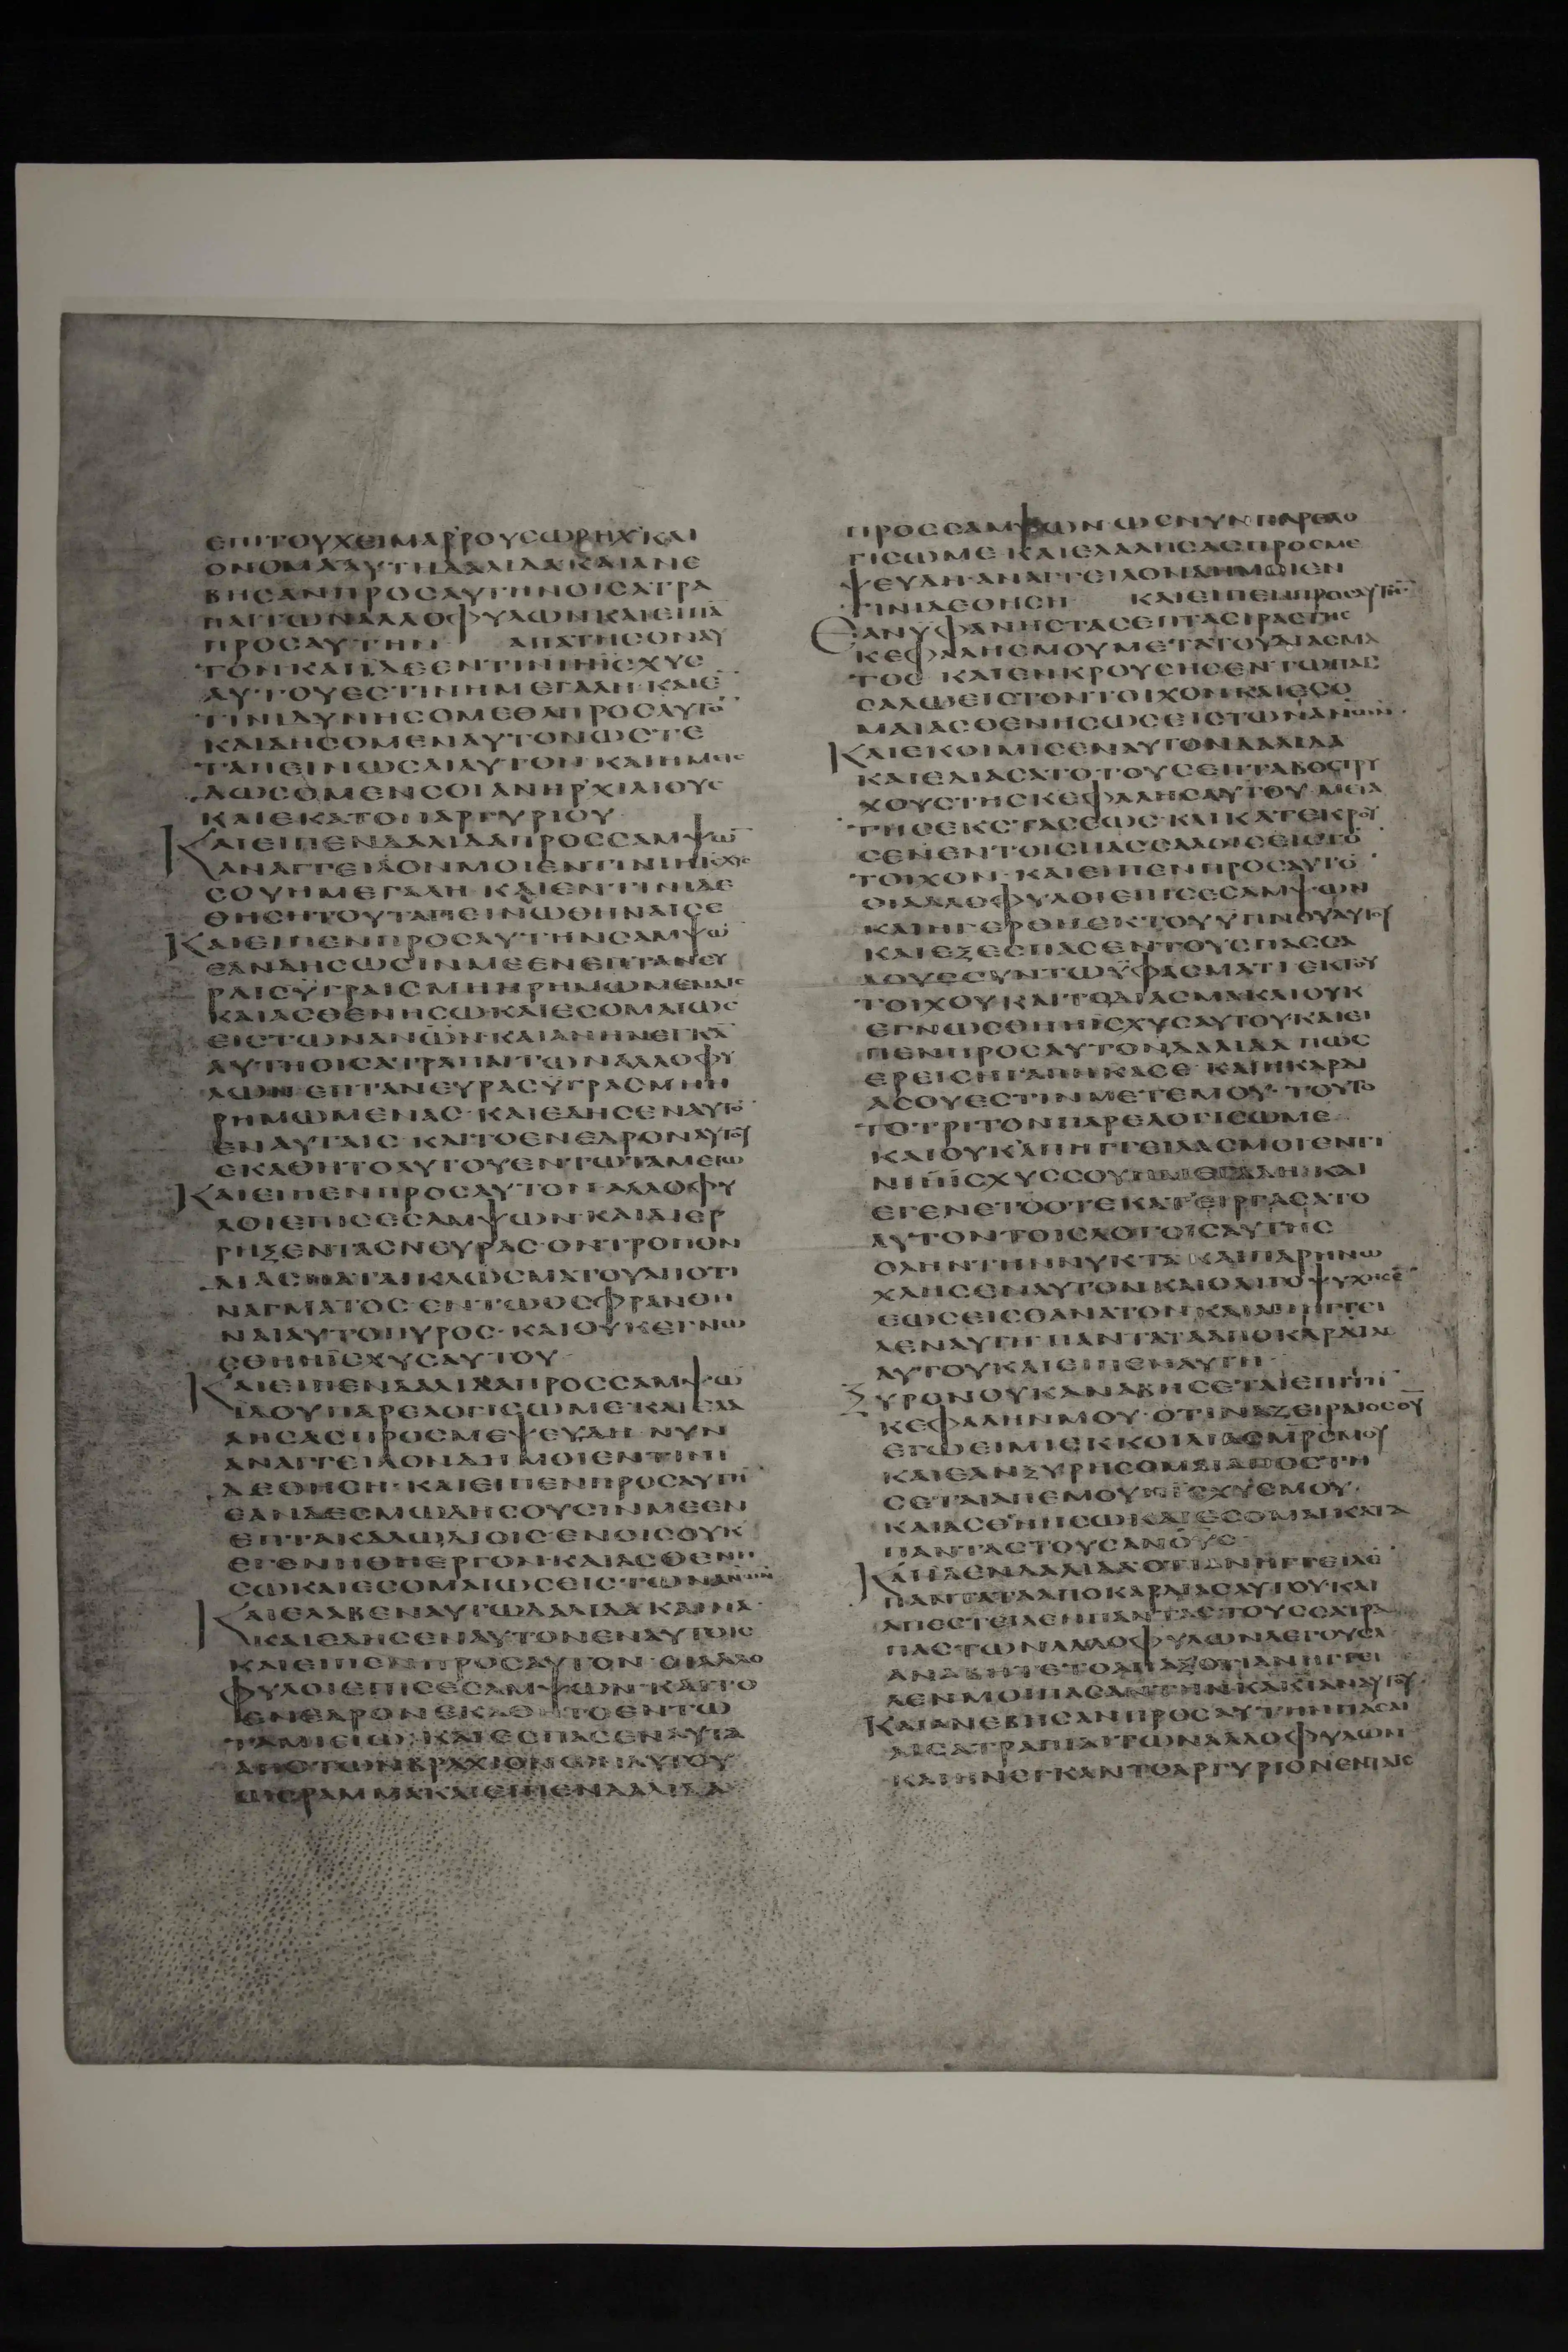 ΕΠΙΤΟΥΧΕΙΜΑΡΡΟΥΣΩΡΗΧΚΑΙ
ΟΝΟΜΑΑΥΤΗΔΑΛΙΛΑΚΑΙΑΝΕ
ΒΗΣΑΝΠΡΟΣΑΥΤΗΝΟΙΣΑΤΡΑ
ΠΑΙΤΩΝΑΛΛΟΦΥΛΩΝΚΑΙΕΙΠΑ̅
ΠΡΟΣΑΥΤΗΝ ΑΠΑΤΗΣΟΝΑΥ
ΤΟΝΚΑΙΪΔΕΕΝΤΙΝΙΗΪΣΧΥΣ
ΑΥΤΟΥΕΣΤΙΝΗΜΕΓΑΛΗ·ΚΑΙΕ̅
ΤΙΝΙΔΥΝΗΣΟΜΕΘΑΠΡΟΣΑΥΤΟ̅
ΚΑΙΔΗΣΟΜΕΝΑΥΤΟΝΩΣΤΕ
ΤΑΠΕΙΝΩΣΑΙΑΥΤΟΝ·ΚΑΙΗΜΕΙΣ
ΔΩΣΟΜΕΝΣΟΙΑΝΗΡΧΙΛΙΟΥΣ
ΚΑΙΕΚΑΤΟΝΑΡΓΥΡΙΟΥ·
ΚΑΙΕΙΠΕΝΔΑΛΙΛΑΠΡΟΣΣΑΜΨΩ̅
ΑΝΑΓΓΕΙΛΟΝΜΟΙΕΝΤΙΝΙΗΙΣΧΥΣ
ΣΟΥΗΜΕΓΑΛΗ·ΚΑΙΕΝΤΙΝΙΔΕ
ΘΗΣΗΤΟΥΤΑΠΕΙΝΩΘΗΝΑΙΣΕ
ΚΑΙΕΙΠΕΝΠΡΟΣΑΥΤΗΝΣΑΜΨΩ̅
ΕΑΝΔΗΣΩΣΙΝΜΕΕΝΕΠΤΑΝΕΥ
ΡΑΙΣΫΓΡΑΙΣΜΗΗΡΗΜΩΜΕΝΑΙΣ
ΚΑΙΑΣΘΕΝΗΣΩΚΑΙΕΣΟΜΑΙΩΣ
ΕΙΣΤΩΝΑΝΩΝ·ΚΑΙΑΝΗΝΕΓΚΑ̅
ΑΥΤΗΟΙΣΑΤΡΑΠΑΙΤΩΝΑΛΛΟΦΥ
ΛΩΝΕΠΤΑΝΕΥΡΑΣΫΓΡΑΣΜΗΗ
ΡΗΜΩΜΕΝΑΣ·ΚΑΙΕΔΗΣΕΝΑΥΤΟ̅
ΕΝΑΥΤΑΙΣ·ΚΑΙΤΟΕΝΕΔΡΟΝΑΥΤΟΥ
ΕΚΑΘΗΤΟΑΥΤΟΥΕΝΤΩΤΑΜΕΙΩ
ΚΑΙΕΙΠΕΝΠΡΟΣΑΥΤΟΝΑΛΛΟΦΥ
ΛΟΙΕΠΙΣΕΣΑΜΨΩΝ·ΚΑΙΔΙΕΡ
ΡΗΞΕΝΤΑΣΝΕΥΡΑΣ·ΟΝΤΡΟΠΟΝ
ΔΙΑΣΠΑΤΑΙΚΛΩΣΜΑΤΟΥΑΠΟΤΙ
ΝΑΓΜΑΤΟΣ·ΕΝΤΩΟΣΦΡΑΝΘΗ
ΝΑΙΑΥΤΟΠΥΡΟΣ·ΚΑΙΟΥΚΕΓΝΩ
ΣΘΗΗΪΣΧΥΣΑΥΤΟΥ
ΚΑΙΕΙΠΕΝΔΑΛΙΛΑΠΡΟΣΣΑΜΨΩ̅
ΪΔΟΥΠΑΡΕΛΟΓΙΣΩΜΕ·ΚΑΙΕΛΑ
ΛΗΣΑΣΠΡΟΣΜΕΨΕΥΔΗ·ΝΥΝ
ΑΝΑΓΓΕΙΛΟΝΔΗΜΟΙΕΝΤΙΝΙ
ΔΕΘΗΣΗ·ΚΑΙΕΙΠΕΝΠΡΟΣΑΥΤΗ̅
ΕΑΝΔΕΣΜΩΔΗΣΟΥΣΙΝΜΕΕΝ
ΕΠΤΑΚΑΛΩΔΙΟΙΣ·ΕΝΟΙΣΟΥΚ
ΕΓΕΝΗΘΗΕΡΓΟΝ·ΚΑΙΑΣΘΕΝΗ
ΣΩΚΑΙΕΣΟΜΑΙΩΣΕΙΣΤΩΝΑΝΩΝ
ΚΑΙΕΛΑΒΕΝΑΥΤΩΔΑΛΙΛΑΚΑΙΝΑ·
ΚΑΙΕΔΗΣΕΝΑΥΤΟΝΕΝΑΥΤΟΙΣ
ΚΑΙΕΙΠΕΝΠΡΟΣΑΥΤΟΝ·ΟΙΑΛΛΟ
ΦΥΛΟΙΕΠΙΣΕΣΑΜΨΩΝ·ΚΑΙΤΟ
ΕΝΕΔΡΟΝΕΚΑΘΗΤΟΕΝΤΩ
ΤΑΜΙΕΙΩ·ΚΑΙΕΣΠΑΣΕΝΑΥΤΑ
ΑΠΟΤΩΝΒΡΑΧΙΟΝΩΝΑΥΤΟΥ
ΩΣΡΑΜΜΑΚΑΙΕΙΠΕΝΔΑΛΙΛΑ
ΠΡΟΣΣΑΜΨΩΝ·ΩΣΝΥΝΠΑΡΕΛΟ
ΓΙΣΩΜΕ·ΚΑΙΕΛΑΛΗΣΑΣΠΡΟΣΜΕ
ΨΕΥΔΗ·ΑΝΑΓΓΕΙΛΟΝΔΗΜΟΙΕΝ
ΤΙΝΙΔΕΘΗΣΗ ΚΑΙΕΙΠΕΝΠΡΟΣΑΥΤΗΝ
ΕΑΝΥΦΑΝΗΣΤΑΣΕΠΤΑΣΙΡΑΣΤΗΣ
ΚΕΦΑΛΗΣΜΟΥΜΕΤΑΤΟΥΔΙΑΣΜΑ
ΤΟΣ ΚΑΙΕΝΚΡΟΥΣΗΣΕΝΤΩΠΑΣ
ΣΑΛΩΕΙΣΤΟΝΤΟΙΧΟΝΚΑΙΕΣΟ
ΜΑΙΑΣΘΕΝΗΣΩΣΕΙΣΤΩΝΑΝΩΝ·
ΚΑΙΕΚΟΙΜΙΣΕΝΑΥΤΟΝΔΑΛΙΛΑ
ΚΑΙΕΔΙΑΣΑΤΟΤΟΥΣΕΠΤΑΒΟΣΤΡΥ
ΧΟΥΣΤΗΣΚΕΦΑΛΗΣΑΥΤΟΥ·ΜΕΤΑ
ΤΗΣΕΚΣΤΑΣΕΩΣ·ΚΑΙΚΑΤΕΚΡΟΥ
ΣΕΝΕΝΤΟΙΣΠΑΣΣΑΛΟΙΣΕΙΣΤΟ̅
ΤΟΙΧΟΝ·ΚΑΙΕΙΠΕΝΠΡΟΣΑΥΤΟ̅
ΟΙΑΛΛΟΦΥΛΟΙΕΠΙΣΕΣΑΜΨΩΝ
ΚΑΙΗΓΕΡΘΗΕΚΤΟΥΫΠΝΟΥΑΥΤΟΥ
ΚΑΙΕΞΕΣΠΑΣΕΝΤΟΥΣΠΑΣΣΑ
ΛΟΥΣΣΥΝΤΩΫΦΑΣΜΑΤΙ·ΕΚΤΟΥ
ΤΟΙΧΟΥΚΑΙΤΟΔΙΑΣΜΑΚΑΙΟΥΚ
ΕΓΝΩΣΘΗΗΪΣΧΥΣΑΥΤΟΥΚΑΙΕΙ
ΠΕΝΠΡΟΣΑΥΤΟΝΔΑΛΙΛΑ ΠΩΣ
ΕΡΕΙΣΗΓΑΠΗΚΑΣΕ·ΚΑΙΗΚΑΡΔΙ
ΑΣΟΥΕΣΤΙΝΜΕΤΕΜΟΥ·ΤΟΥΤΟ
ΤΟΤΡΙΤΟΝΠΑΡΕΛΟΓΙΣΩΜΕ
ΚΑΙΟΥΚΑΠΗΓΓΕΙΛΑΣΜΟΙΕΝΤΙ
ΝΙΗΪΣΧΥΣΣΟΥΗΜΕΓΑΛΗ·ΚΑΙ
ΕΓΕΝΕΤΟΟΤΕΚΑΤΕΙΡΓΑΣΑΤΟ
ΑΥΤΟΝΤΟΙΣΛΟΓΟΙΣΑΥΤΗΣ
ΟΛΗΝΤΗΝΝΥΚΤΑΚΑΙΠΑΡΗΝΩ
ΧΛΗΣΕΝΑΥΤΟΝΚΑΙΩΛΙΓΟΨΥΧΗΣΕ̅
ΕΩΣΕΙΣΘΑΝΑΤΟΝ·ΚΑΙΑΝΗΓΓΕΙ
ΛΕΝΑΥΤΗΠΑΝΤΑΤΑΑΠΟΚΑΡΔΙΑΣ
ΑΥΤΟΥΚΑΙΕΙΠΕΝΑΥΤΗ
ΞΥΡΟΝΟΥΚΑΝΑΒΗΣΕΤΑΙΕΠΙΤΗ̅
ΚΕΦΑΛΗΝΜΟΥ·ΟΤΙΝΑΖΕΙΡΑΙΟΣΘΥ
ΕΓΩΕΙΜΙΕΚΚΟΙΛΙΑΣΜΡΣΜΟΥ
ΚΑΙΕΑΝΞΥΡΗΣΟΜΑΙΑΠΟΣΤΗ
ΣΕΤΑΙΑΠΕΜΟΥΗΪΣΧΥΣΜΟΥ
ΚΑΙΑΣΘΗΝΗΣΩΚΑΙΕΣΟΜΑΙΚΑΤΑ
ΠΑΝΤΑΣΤΟΥΣΑΝΟΥΣ
ΚΑΙΪΔΕΝΔΑΛΙΛΑΟΤΙΑΝΗΓΓΕΙΛΕ̅
ΠΑΝΤΑΤΑΑΠΟΚΑΡΔΙΑΣΑΥΤΟΥΚΑΙ
ΑΠΕΣΤΕΙΛΕΝΠΑΝΤΑΣΤΟΥΣΣΑΤΡΑ
ΠΑΣΤΩΝΑΛΛΟΦΥΛΩΝΛΕΓΟΥΣΑ
ΑΝΑΒΗΤΕΤΟΑΠΑΞΟΤΙΑΝΗΓΓΕΙ
ΛΕΝΜΟΙΠΑΣΑΝΤΗΝΚΑΡΔΙΑΝΑΥΤΟΥ
ΚΑΙΑΝΕΒΗΣΑΝΠΡΟΣΑΥΤΗΝΠΑΣΑΙ
ΑΙΣΑΤΡΑΠΙΑΙΤΩΝΑΛΛΟΦΥΛΩΝ
ΚΑΙΗΝΕΓΚΑΝΤΟΑΡΓΥΡΙΟΝΕΝΤΑΙΣ